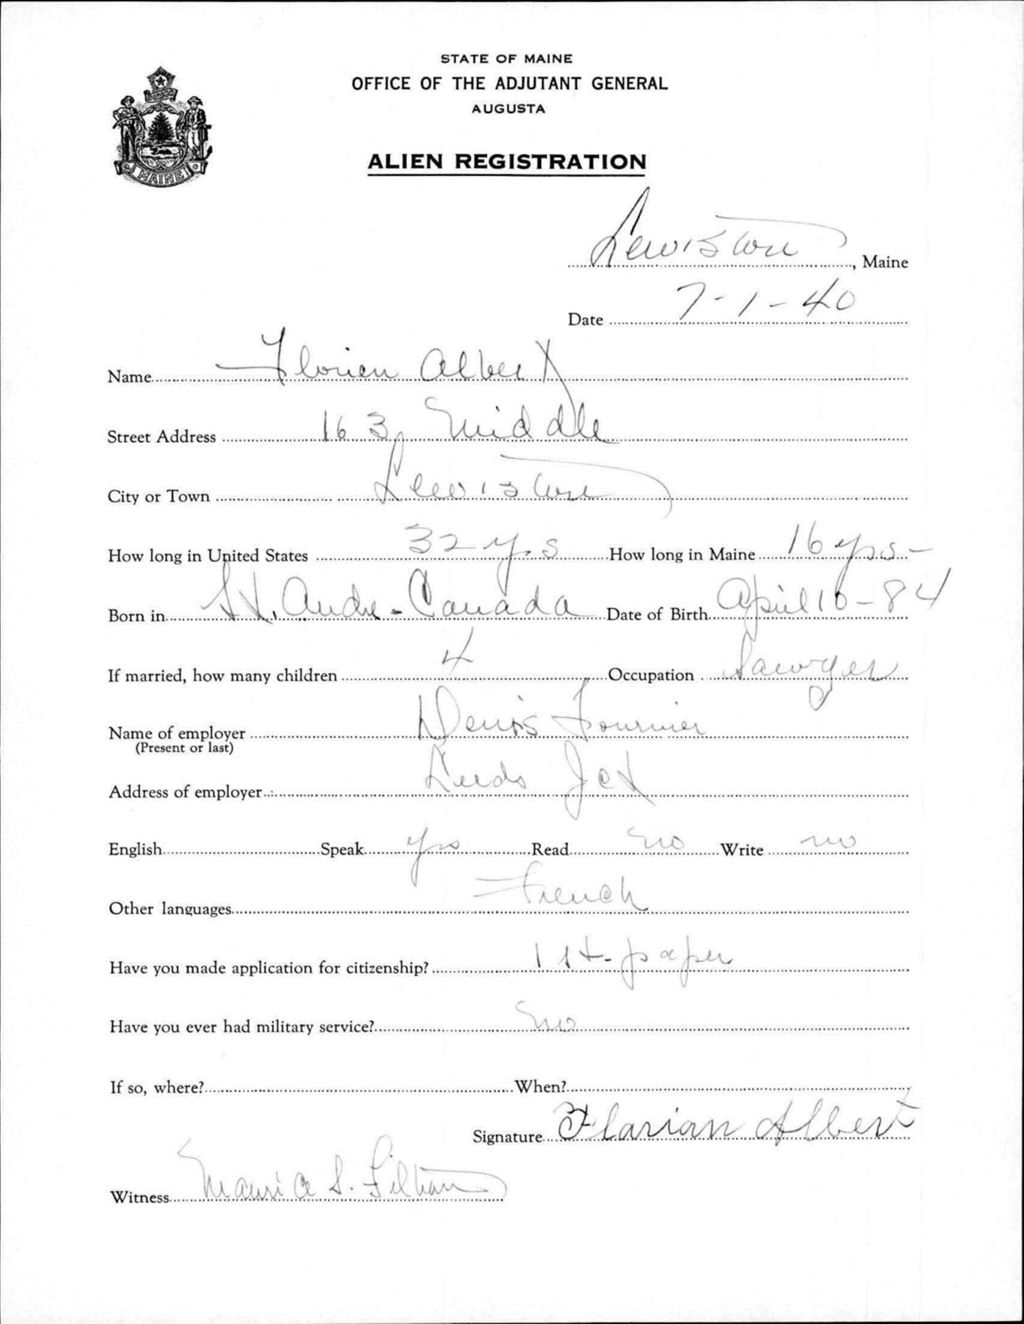 STATE OF MAINE
OFFICE OF THE ADJUTANT GENERAL
AUGUSTA
MAINE
ALIEN REGISTRATION
Lewiston, Maine
Date 7-1-40
Name Florien Albert
Street Address 163 Middle
City or Town Lewiston
How long in United States 32 yrs How long in Maine 16 yrs-
Born in St. Andre-Canada Date of Birth April 16-84
If married, how many children 4 Occupation Sawyer
Name of employer Denis Fournier
(Present or last)
Address of employer Leeds Jct
English Speak yes Read no Write no
Other languages French
Have you made application for citizenship? 1st-paper
Have you ever had military service? no
If so, where? When?
Signature Florian Albert
Witness Maurice S.